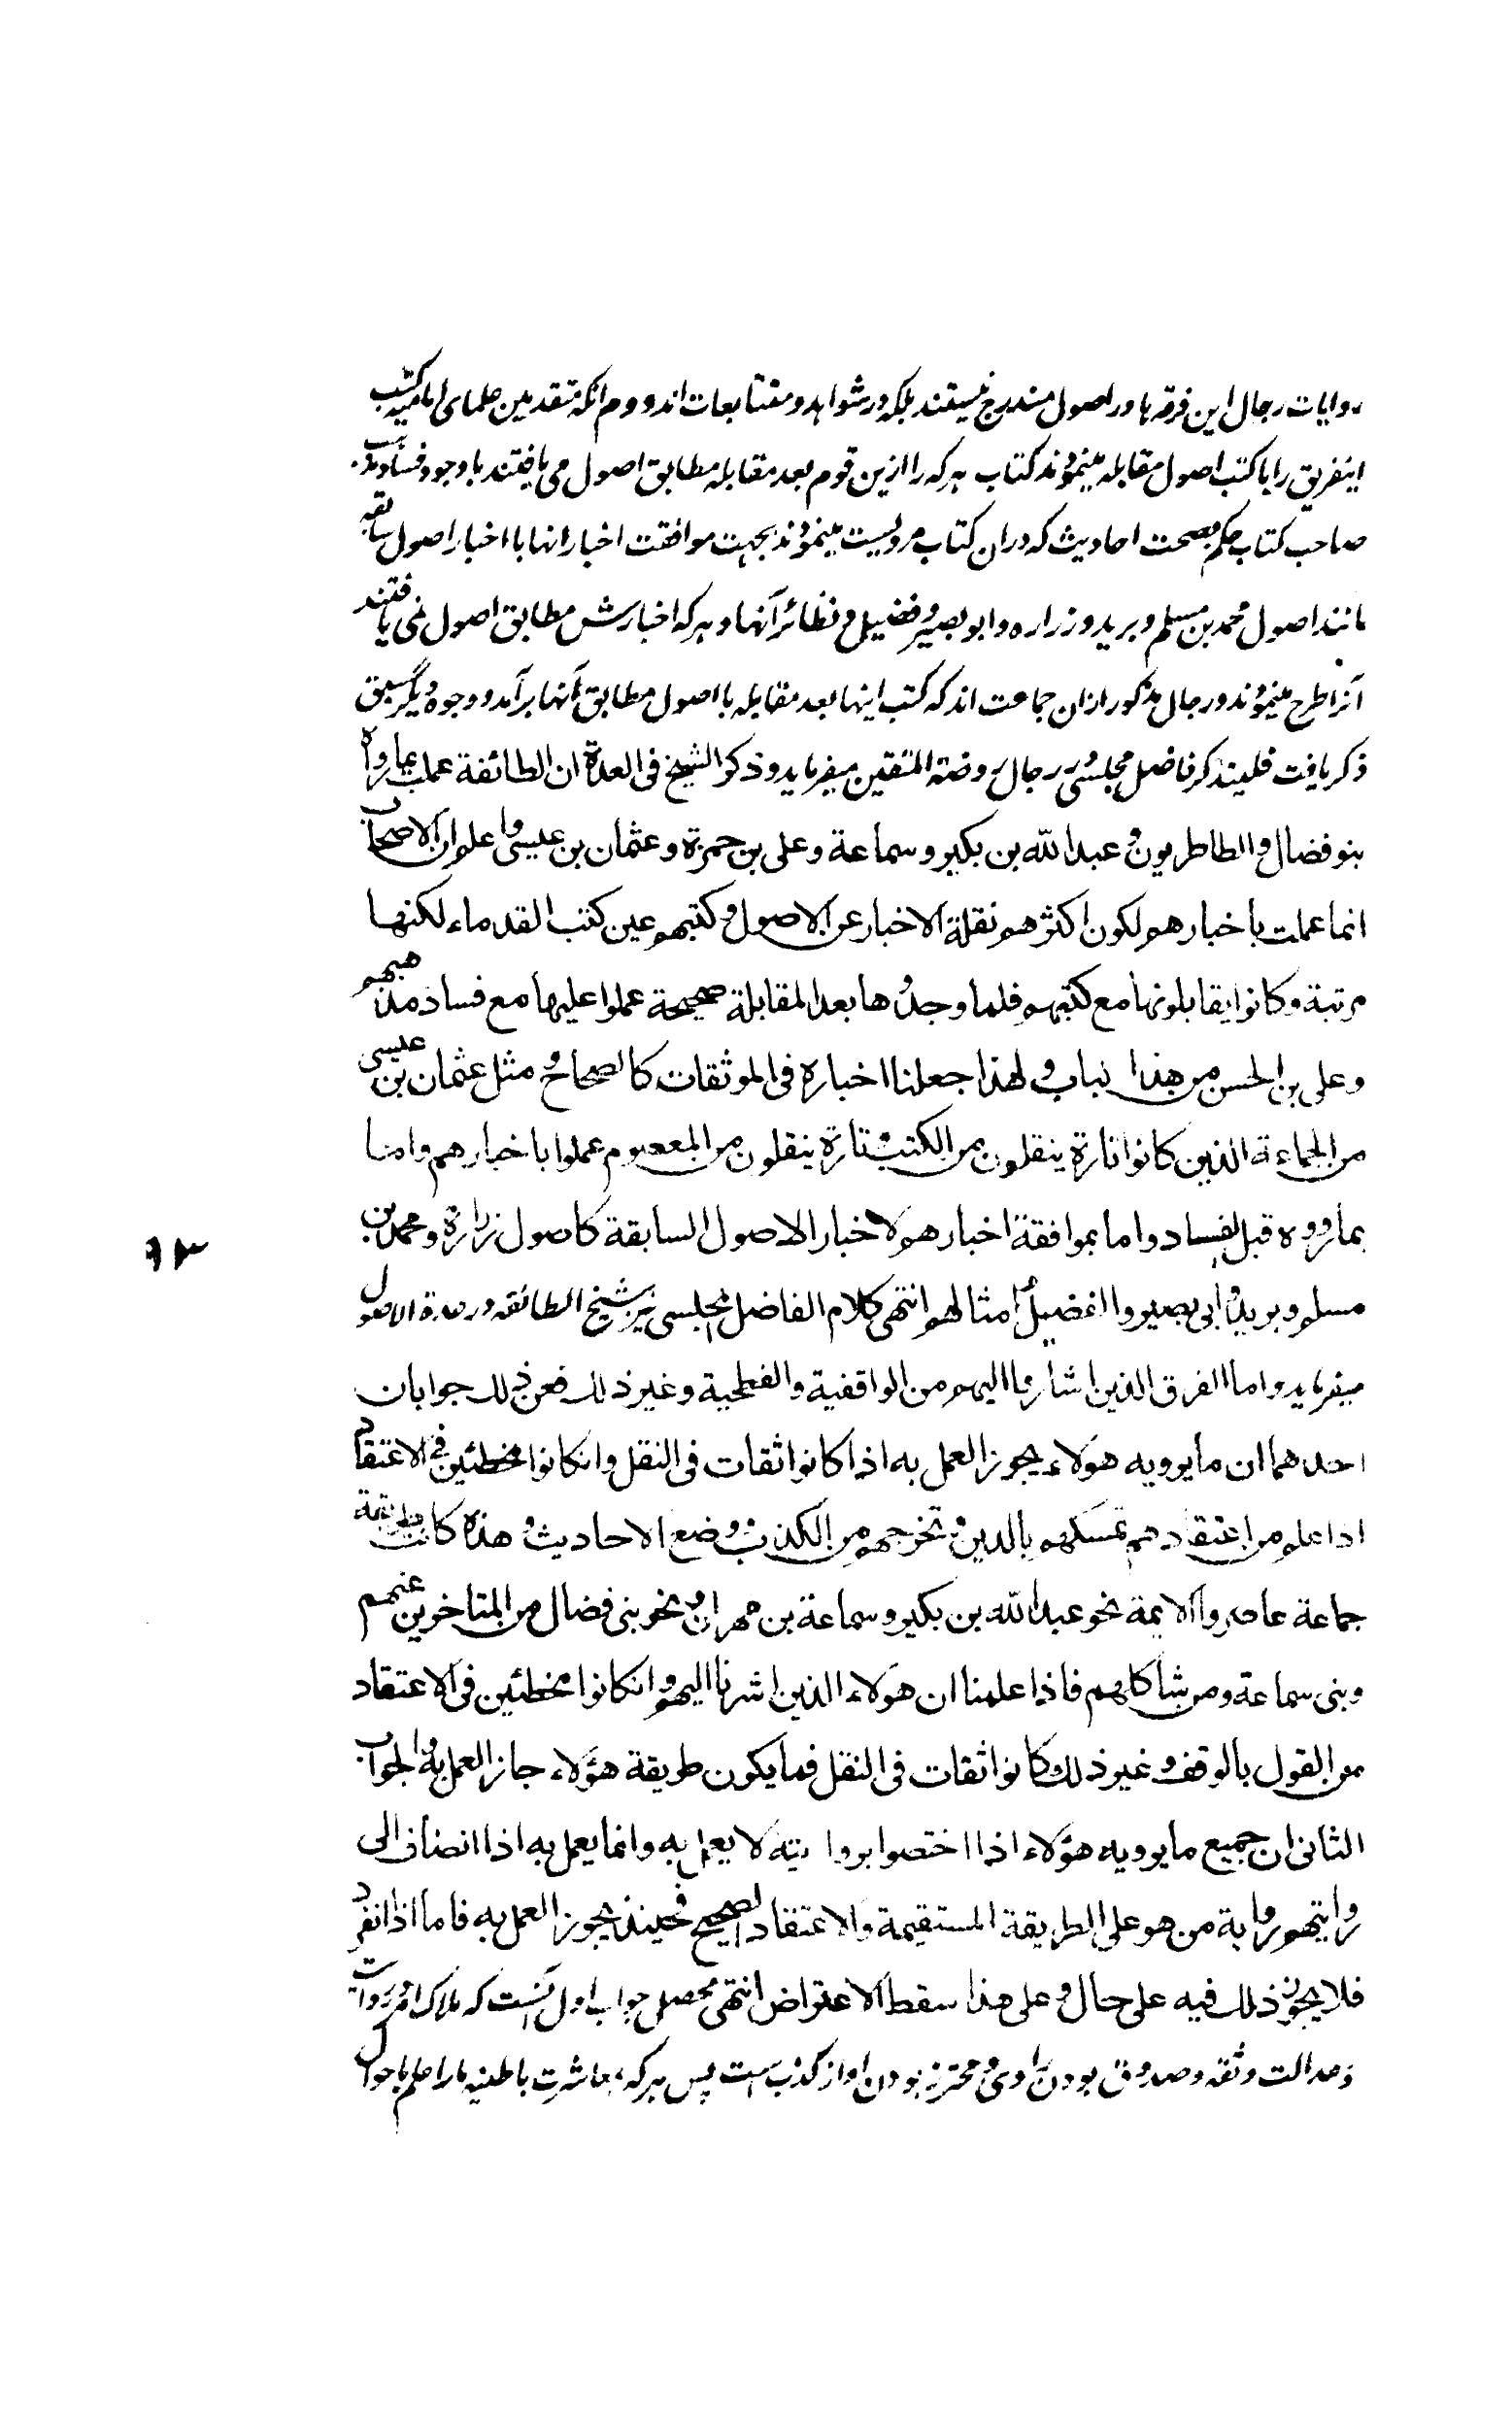 روایات رجال این فرقه ها در اصول مندرج نیستند بلکه در شواهد و متابعات اند دوم آنکه متقدمین علمای امامیه کتب
اینفریق را با کتب اصول مقابله مینمودند کتاب هرکه را ازین قوم بعد مقابله مطابق اصول می یافتند با وجود فساد مذهب
صاحب کتاب حکم بصحت احادیث که دران کتاب مرویست مینمودند بجهت موافقت اخبار انها با اخبار اصول سابقه
مانند اصول محمد بن مسلم و برید و زراره و ابو بصیر و فضیل و نظائر آنها و هرکه اخبارش مطابق اصول نمی یافتند
آنرا طرح مینمودند و رجال مذکور ازان جماعت اند که کتب اینها بعد مقابله با اصول مطابق آنها برآمد و وجوه دیگر سبق
ذکر یافت فلیتذکر فاضل مجلسی در رجال روضة المتقین میفرماید وذکر الشیخ فی العدة ان الطائفة عملت بما رواه
بنو فضال والطاطریون وعبدالله بن بکیر وسماعة وعلی بن حمزة وعثمان بن عیسی واعلم ان الاصحاب
انما عملت باخبارهم لکون اکثرهم نقلة الاخبار عن الاصول وکتبهم عین کتب القدماء لکنها
مرتبة وکانوا یقابلونها مع کتبهم فلما وجدوها بعد المقابلة صحیحة عملوا علیها مع فساد مذهبهم
وعلی بن الحسن من هذا الباب ولهذا جعلنا اخباره فی الموثقات کالصحاح ومثل عثمان بن عیسی
من الجماعة الذین کانوا تارة ینقلون من الکتب وتارة ینقلون من المعصوم عملوا باخبارهم واما
بما رووه قبل الفساد واما بموافقة اخبارهم لاخبار الاصول السابقة کاصول زرارة ومحمد بن
مسلم وبرید وابی بصیر والفضیل وامثالهم انتهی کلام الفاضل المجلسی نیز شیخ الطائفه در عدة الاصول
میفرماید واما الفرق الذین اشاروا الیهم من الواقفیة والفطحیة وغیر ذلک فعن ذلک جوابان
احدهما ان ما یرویه هؤلاء یجوز العمل به اذا کانوا ثقات فی النقل وانکانوا مخطئین فی الاعتقاد
اذا علم من اعتقادهم تمسکهم بالدین وتخرجهم من الکذب ووضع الاحادیث وهذه کانت طریقة
جماعة عاصروا الایمة نحو عبدالله بن بکیر وسماعة بن مهران ونحو بنی فضال من المتاخرین عنهم
وبنی سماعة ومن شاکلهم فاذا علمنا ان هؤلاء الذین اشرنا الیهم وانکانوا مخطئین فی الاعتقاد
من القول بالوقف وغیر ذلک کانوا ثقات فی النقل فما یکون طریقة هؤلاء جاز العمل به والجواب
الثانی ان جمیع ما یرویه هؤلاء اذا اختصوا بروایته لا یعمل به وانما یعمل به اذا انضاف الی
روایتهم روایة من هو علی الطریقة المستقیمة والاعتقاد الصحیح فحینئذ یجوز العمل به فاما اذا انفرد
فلا یجوز ذلک فیه علی حال وعلی هذا سقط الاعتراض انتهی محصل جواب اول آنست که ملاک امر در روایت
وعدالت و ثقه و صدوق بودن راوی و محترز بودن او از کذب است پس هرکه بمعاشرت باطنیه ما را علم باحوال
۹۳